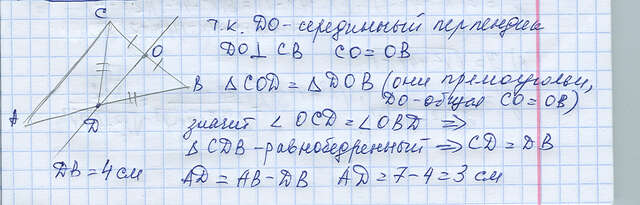 C
т.к. DO-серединный перпендик
O
DO⊥ CB CO=OB
B
ΔCOD=ΔDOB (они прямоугольн,
DO-общая CO=OB)
A
D
значит ∠OCD=∠OBD ⇒
ΔCDB-равнобедренный ⇒ CD=DB
DB=4см
AD=AB-DB AD=7-4=3 см